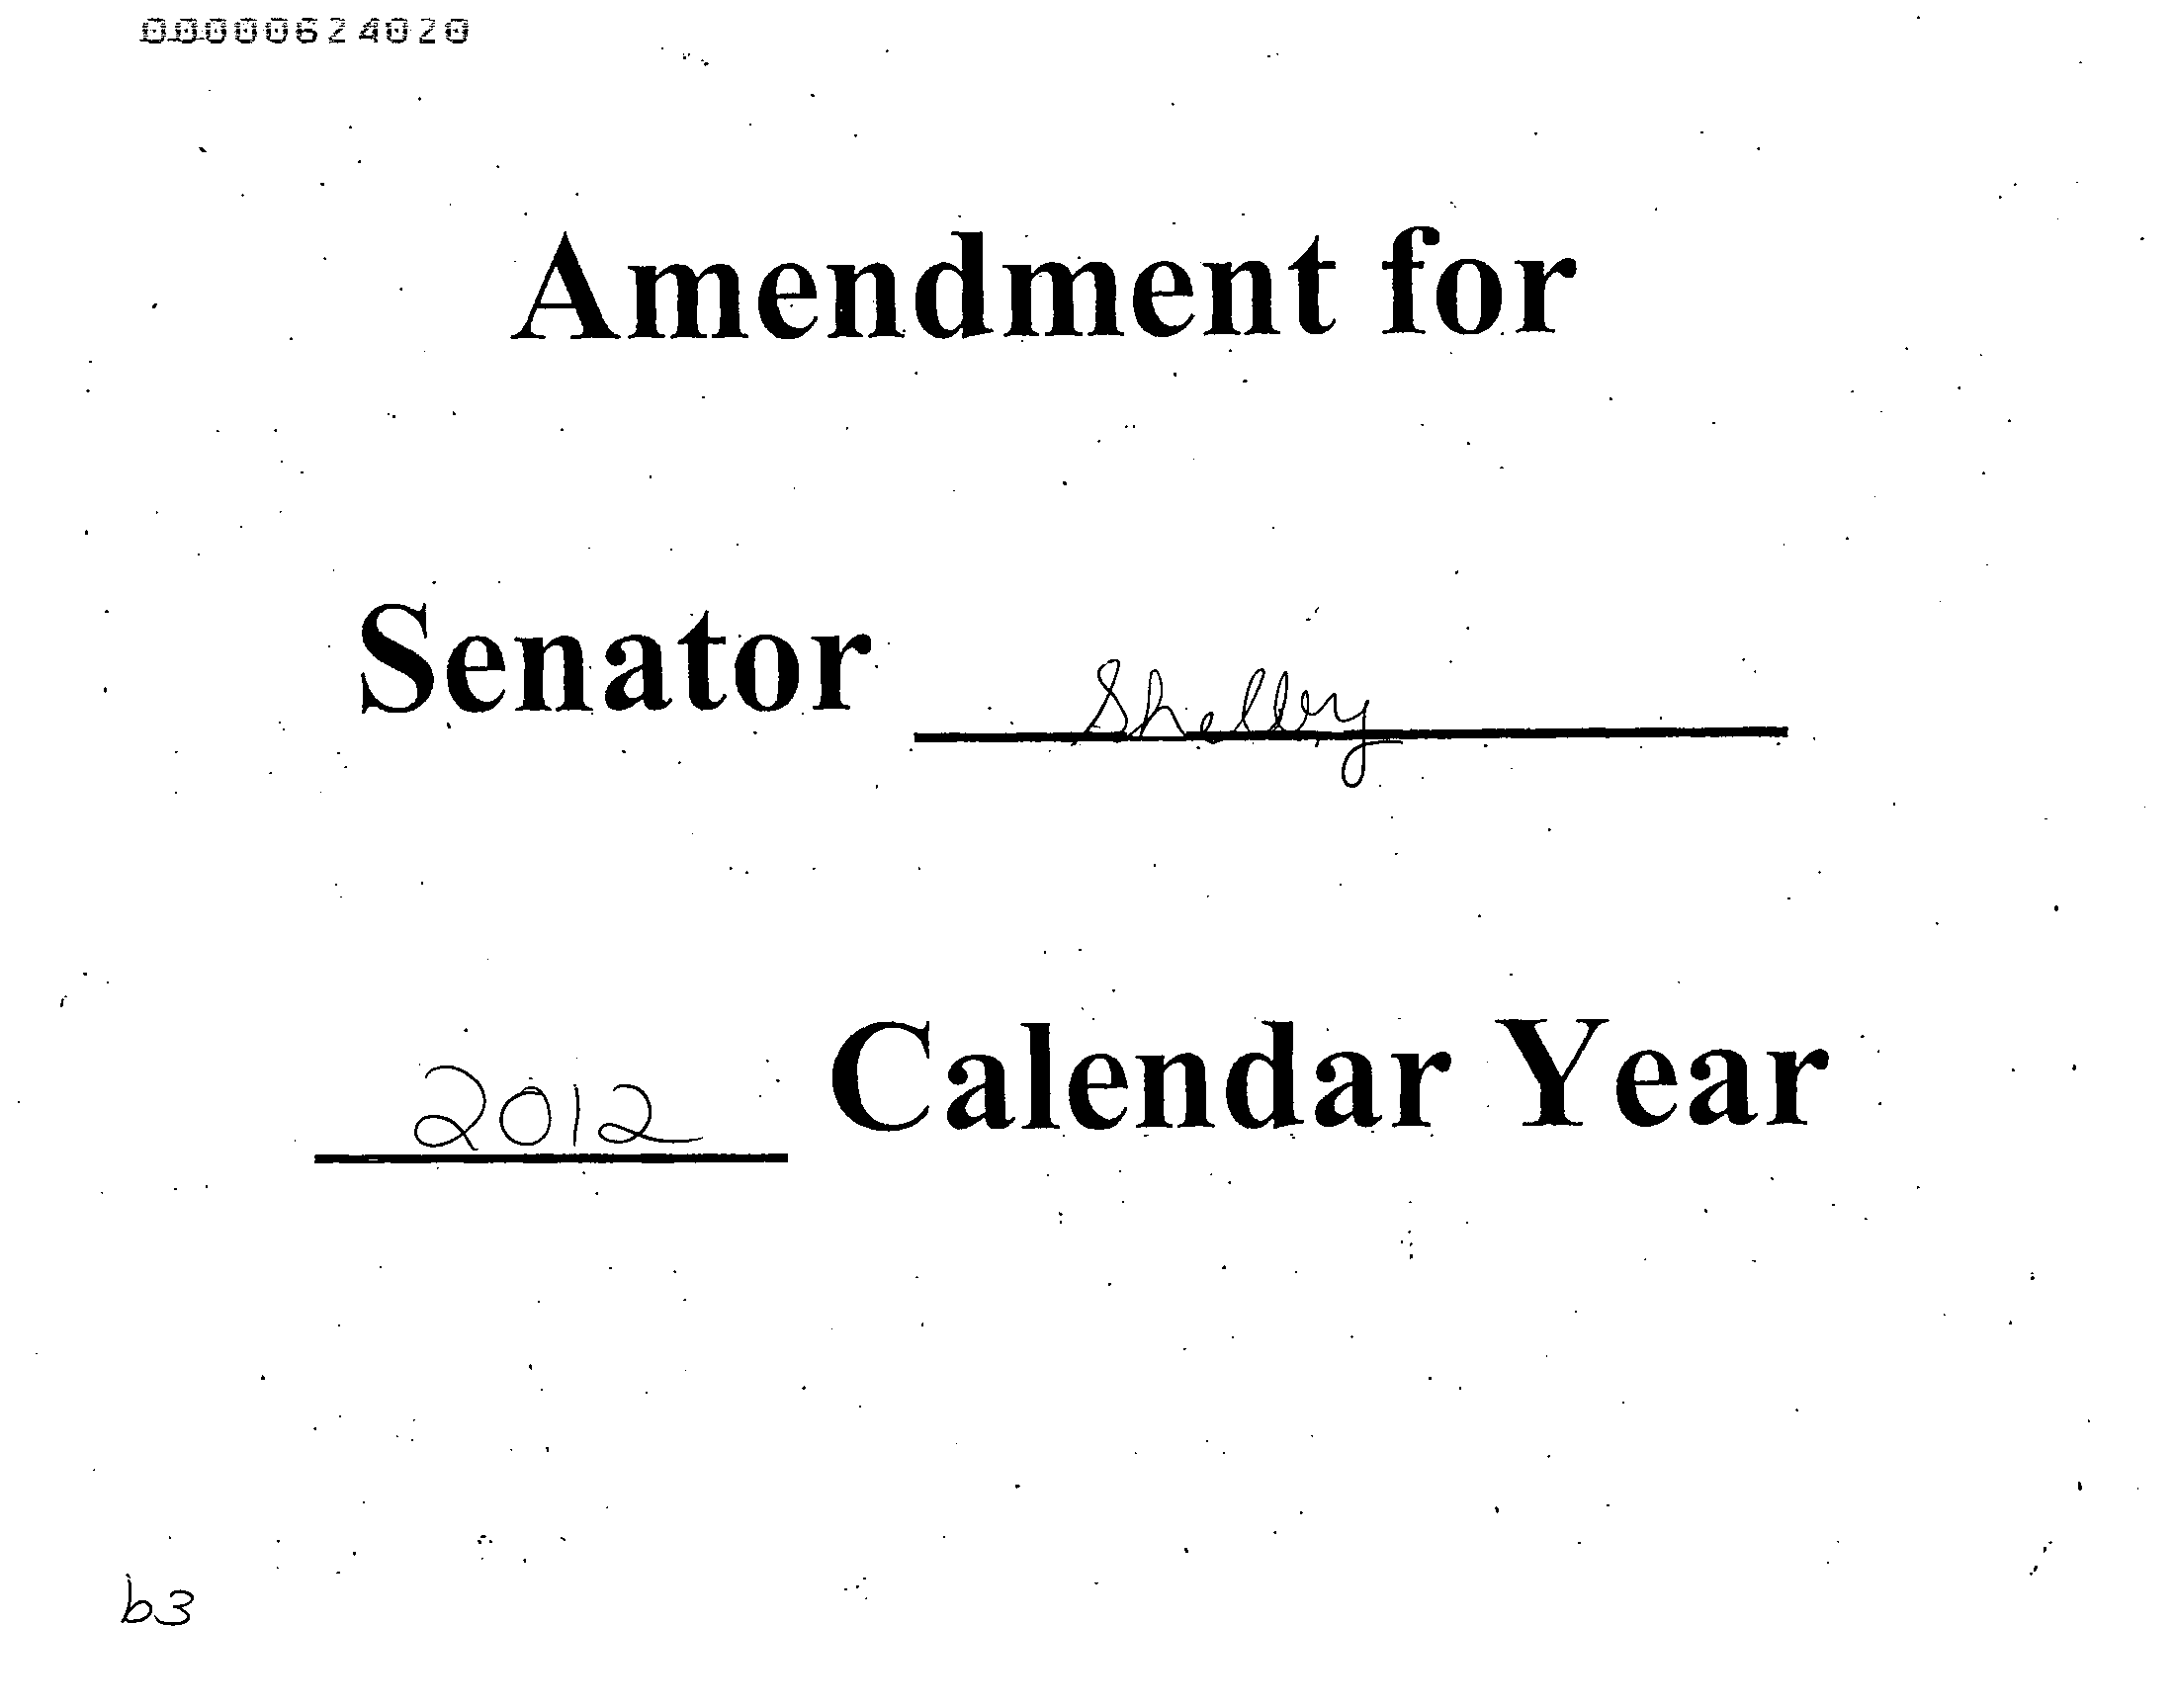 00000624020
Amendment for
Senator Shelby
2012 Calendar Year
b3